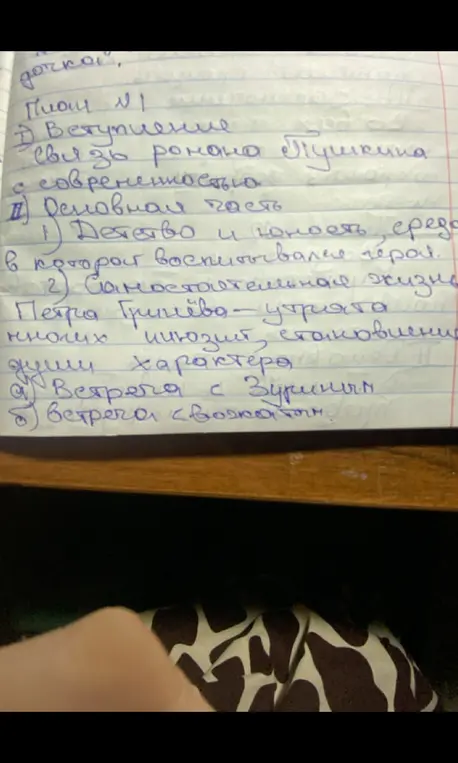 дочкой".
План №1
I) Вступление
Связь романа Пушкина
с современностью
II) Основная часть
1) Детство и юность, среда
в которой воспитывался герой.
2) Самостоятельная жизнь
Петра Гринёва — утрата
многих иллюзий, становление
души характера
а) Встреча с Зуриным
б) Встреча с вожатым.